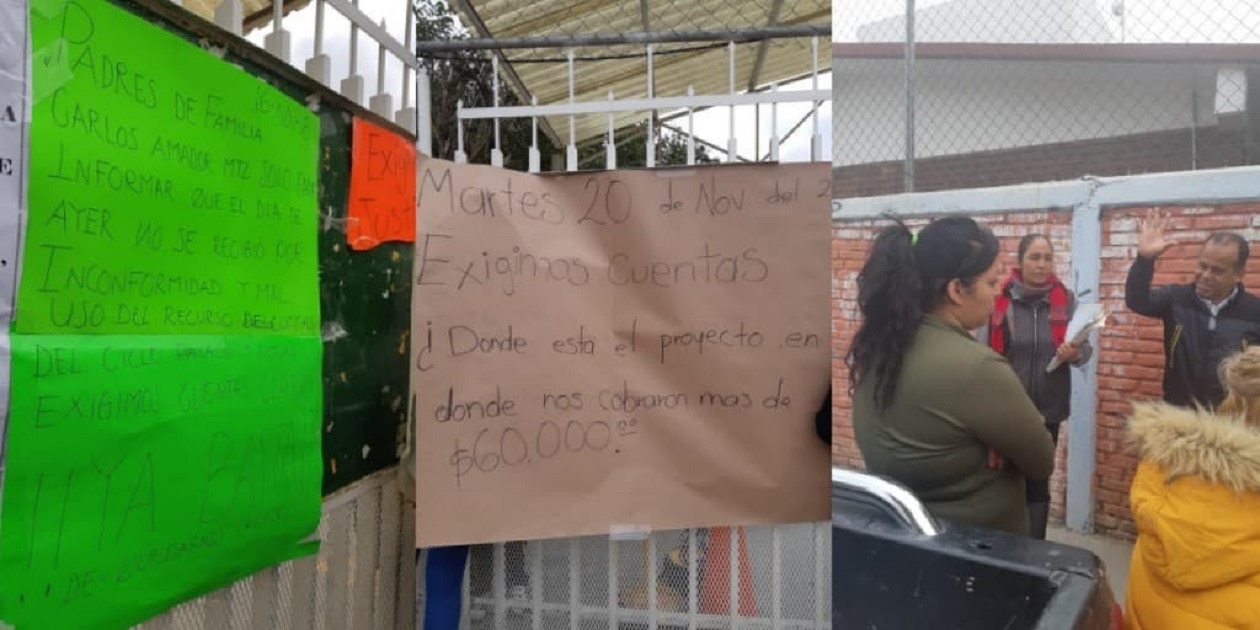 A
E
PADRES DE FAMILIA
CARLOS AMADOR MTZ SOLO
INFORMAR QUE EL DIA DE
AYER NO SE RECIBIO POR
INCONFORMIDAD Y MAL
USO DEL RECURSO DE CUOTAS
DEL CICLO
EXIGIMOS CUENTAS
¡¡YA
DE
Martes 20 de Nov del 2
Exigimos cuentas
¿Donde esta el proyecto en
donde nos cobraron mas de
$60,000.00